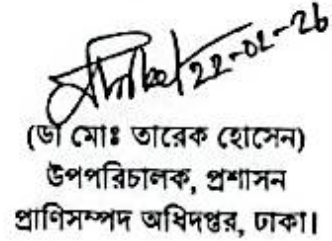 22-02-26
(ডা মোঃ তারেক হোসেন)
উপপরিচালক, প্রশাসন
প্রাণিসম্পদ অধিদপ্তর, ঢাকা।